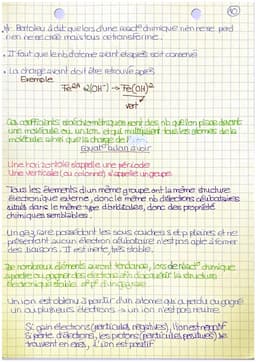 10
Bertoleu à dit que lors d'une réact° chimique rien ne se perd
rien ne se crée mais tous ce transforme.
Il faut que le nb d'atome avant et après soit conservé
La charge avant doit être retrouvée après
Exemple
Fe²⁺ + 2(OH⁻) → Fe(OH)²
vert
Ces coefficients stoechiométriques sont des nb que l'on place devant
une molécule ou un ion et qui multiplient tous les atomes de la
molécule ainsi que la charge de l'
équat° bilan à voir
Une horizontale s'appelle une période
Une verticale (ou colonne) s'appelle un groupe
Tous les éléments d'un même groupe ont la même structure
électronique externe, donc le même nb d'électrons célibataires
situés dans le même type d'orbitales, donc des propriétés
chimiques semblables.
Un gaz rare possédant les sous couches s et p pleines et ne
présentant aucun électron célibataire n'est pas apte à former
des liaisons. Il est inerte, très stable.
De nombreux éléments auront tendance, lors de réact° chimique
à perdre ou gagner des électrons afin d'acquérir la structure
électronique stable s² p⁶ d'un gaz rare
Un ion est obtenu à partir d'un atome qui a perdu ou gagné
un ou plusieurs électrons → un ion n'est pas neutre.
Si gain électrons (particules négatives), l'ion est négatif
Si perte d'électrons, les protons (particules positives) se
trouvent en excès, l'ion est positif